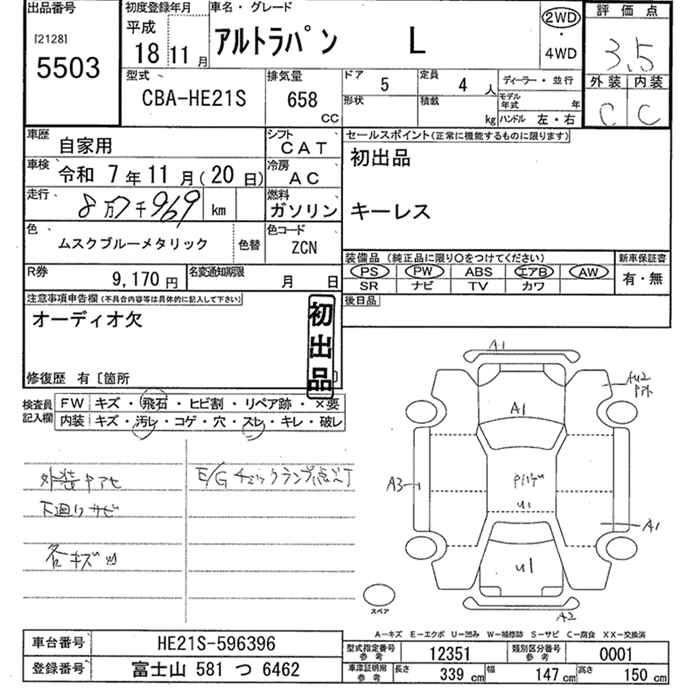 出品番号
[2128]
5503
初度登録年月
平成
18 11月
車名・グレード
アルトラパン L
2WD
・
4WD
評価点
3.5
外装 内装
C C
型式
CBA-HE21S
排気量
658
CC
ドア 5
定員 4 人
形状
積載 kg
ディーラー・並行
モデル年式 年
ハンドル 左・右
車歴
自家用
シフト
CAT
車検
令和 7年11月(20日)
冷房
AC
走行
8万7千969 km
燃料
ガソリン
色
ムスクブルーメタリック
色替
色コード
ZCN
R券
9,170円
名変通知期限
月 日
セールスポイント(正常に機能するものに限ります)
初出品
キーレス
装備品(純正品に限り○をつけてください)
PS PW ABS エアB AW
SR ナビ TV カワ
新車保証書
有・無
後日品
注意事項申告欄(不具合内容等は具体的に記入して下さい)
オーディオ欠
初出品
修復歴 有〔箇所 〕
検査員記入欄
FW キズ・飛石・ヒビ割・リペア跡・×要
内装 キズ・汚レ・コゲ・穴・スレ・キレ・破レ
外装ヤアセ
下廻りサビ
各キズ凹
E/Gチェックランプ点灯
A1
AU2
A1
A3
U1
A1
U1
A2
スペア
A-キズ E-エクボ U-凹み W-補修跡 S-サビ C-腐食 XX-交換済
車台番号
HE21S-596396
登録番号
富士山 581 つ 6462
型式指定番号
参考
12351
類別区分番号
参考
0001
車庫証明用
参考
長さ 339 cm
幅 147 cm
高さ 150 cm